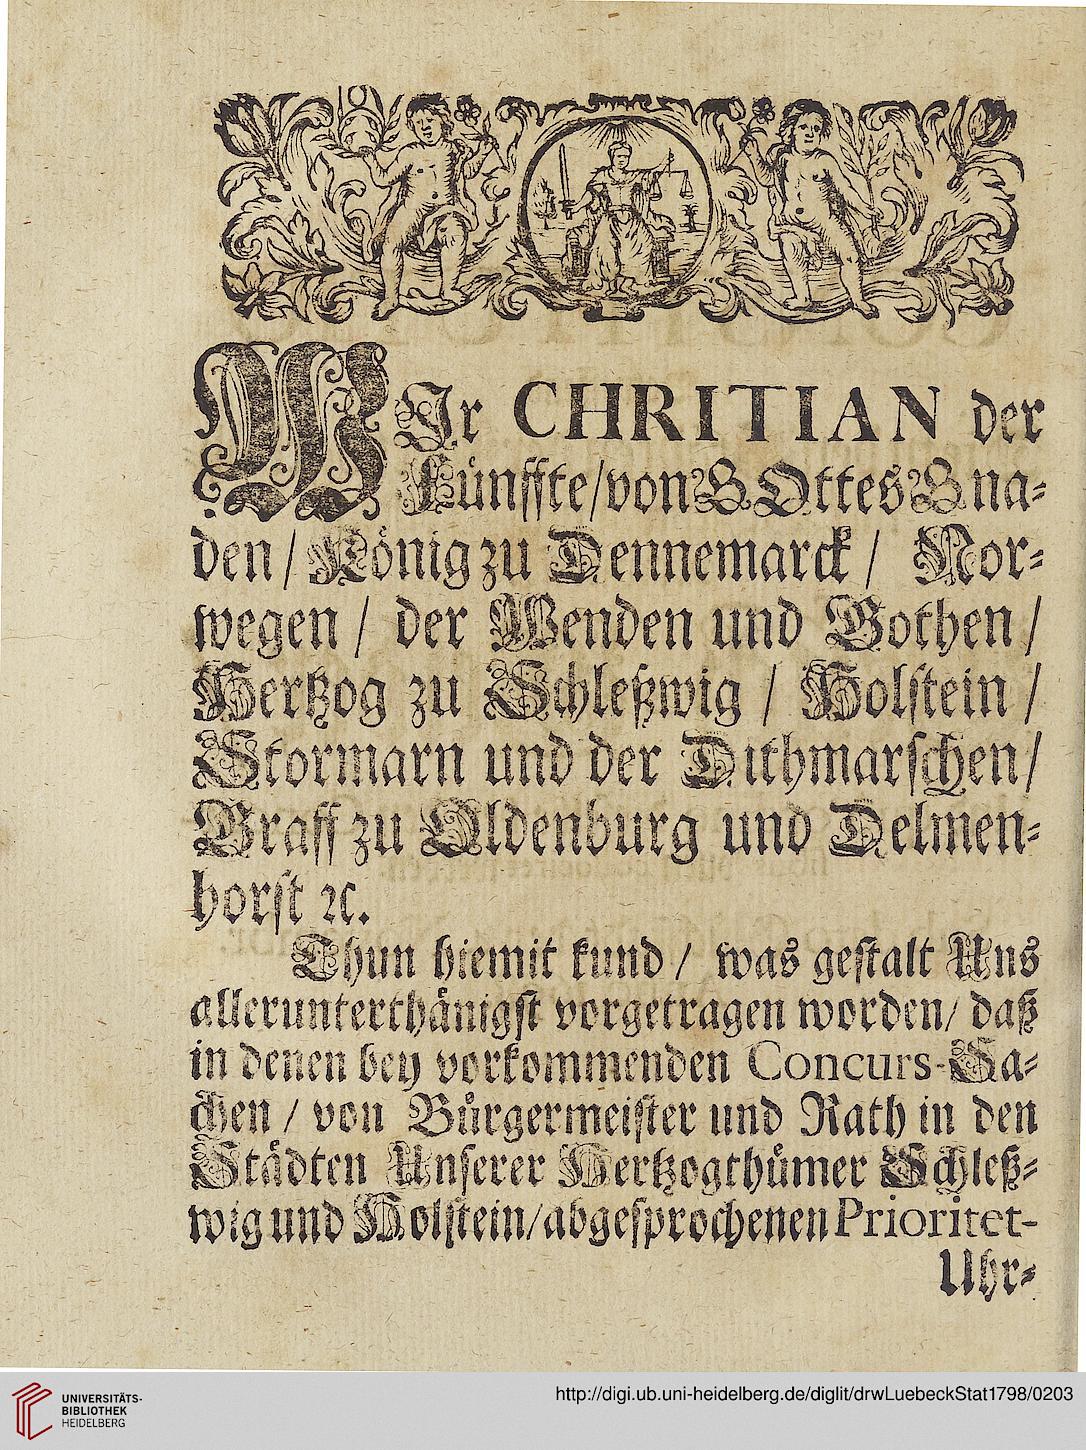 WIr CHRITIAN der
Fünffte/von GOttes Gna⸗
den / König zu Dennemarck / Nor⸗
wegen / der Wenden und Gothen /
Hertzog zu Schleßwig / Holstein /
Stormarn und der Dithmarschen/
Graff zu Oldenburg und Delmen⸗
horst ꝛc.
Thun hiemit kund / was gestalt Uns
allerunterthänigst vorgetragen worden/ daß
in denen bey vorkommenden Concurs-Sa⸗
chen / von Bürgermeister und Rath in den
Städten Unserer Hertzogthümer Schleß⸗
wig und Holstein/abgesprochenen Prioritet-
Uhr⸗
UNIVERSITÄTS-
BIBLIOTHEK
HEIDELBERG
http://digi.ub.uni-heidelberg.de/diglit/drwLuebeckStat1798/0203